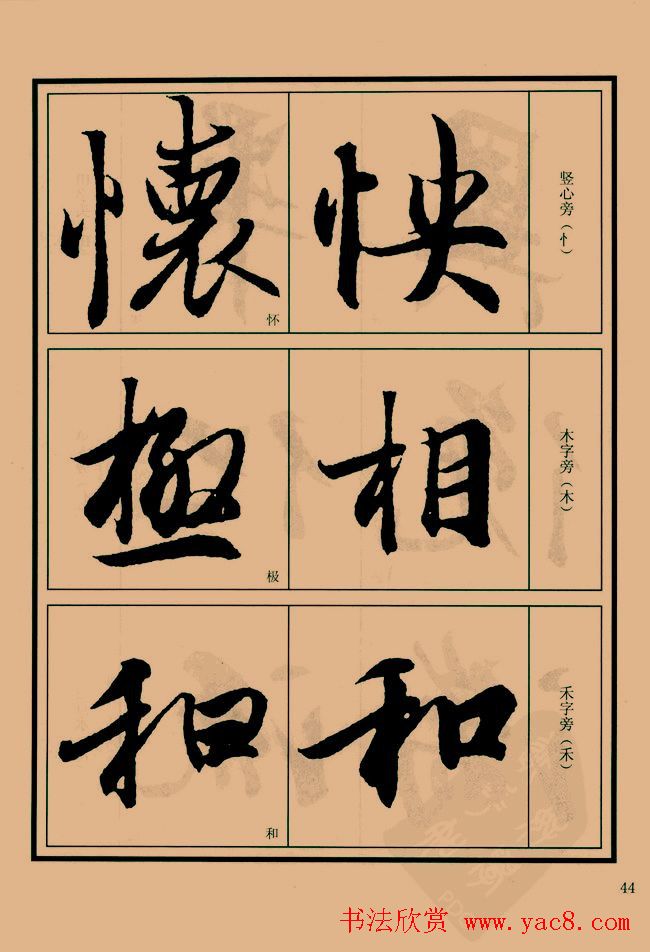 竖心旁（忄）
怏
懷
怀
木字旁（木）
相
極
极
禾字旁（禾）
和
和
和
44
书法欣赏 www.yac8.com